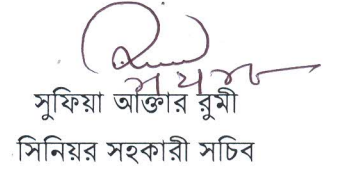 সুফিয়া আক্তার রুমী
সিনিয়র সহকারী সচিব